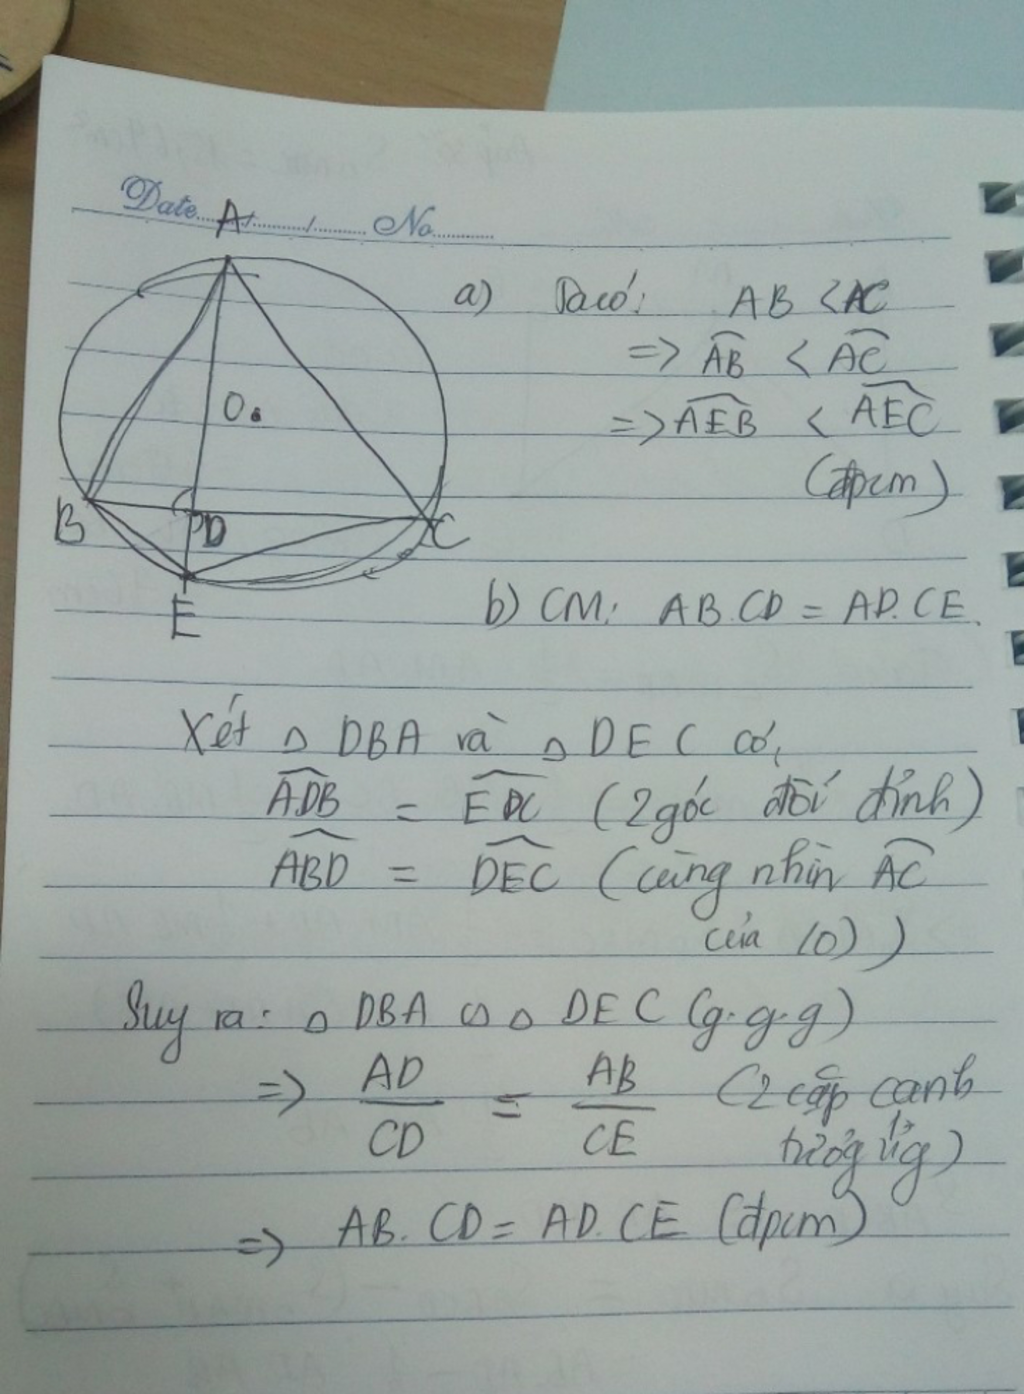 Date A / / No
a) Ta có: AB < AC
O
=> \widehat{AB} < \widehat{AC}
=> \widehat{AEB} < \widehat{AEC}
(đpcm)
B D C
E
b) CM: AB.CD = AD.CE.
Xét △ DBA và △ DEC có,
\widehat{ADB} = \widehat{EDC} (2 góc đối đỉnh)
\widehat{ABD} = \widehat{DEC} (cùng nhìn \widehat{AC}
của (O))
Suy ra: △ DBA ∽ △ DEC (g.g.g)
=> \frac{AD}{CD} = \frac{AB}{CE} (2 cặp cạnh
tương ứg)
=> AB.CD = AD.CE (đpcm)